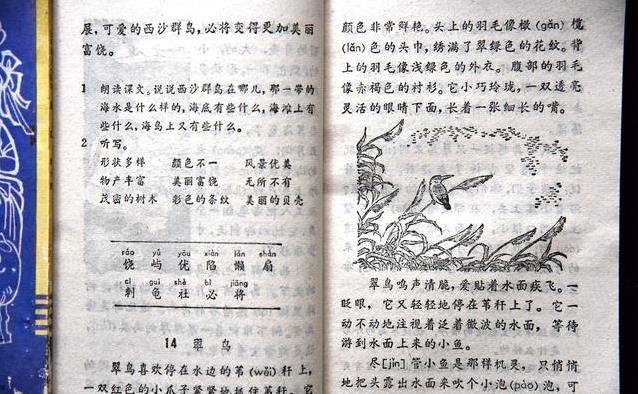 展，可爱的西沙群岛，必将变得更加美丽
富饶。
1 朗读课文。说说西沙群岛在哪儿，那一带的
海水是什么样的，海底有些什么，海滩上有
些什么，海岛上又有些什么。
2 听写。
形状多样 颜色不一 风景优美
物产丰富 美丽富饶 无所不有
茂密的树木 彩色的条纹 美丽的贝壳
ráo yǔ yōu xiàn lǎn shān
饶 屿 优 陷 懒 扇
cì guī shè bì jiāng
刺 龟 社 必 将
14 翠鸟
翠鸟喜欢停在水边的苇(wěi)秆上，
一双红色的小爪子紧紧地抓住苇秆。它
颜色非常鲜艳。头上的羽毛像橄(gǎn)榄
(lǎn)色的头巾，绣满了翠绿色的花纹。背
上的羽毛像浅绿色的外衣。腹部的羽毛
像赤褐色的衬衫。它小巧玲珑，一双透亮
灵活的眼睛下面，长着一张细长的嘴。
翠鸟鸣声清脆，爱贴着水面疾飞。一
眨眼，它又轻轻地停在苇秆上了。它一
动不动地注视着泛着微波的水面，等待
游到水面上来的小鱼。
尽[jǐn]管小鱼是那样机灵，只悄悄
地把头露出水面来吹个小泡(pào)泡，可